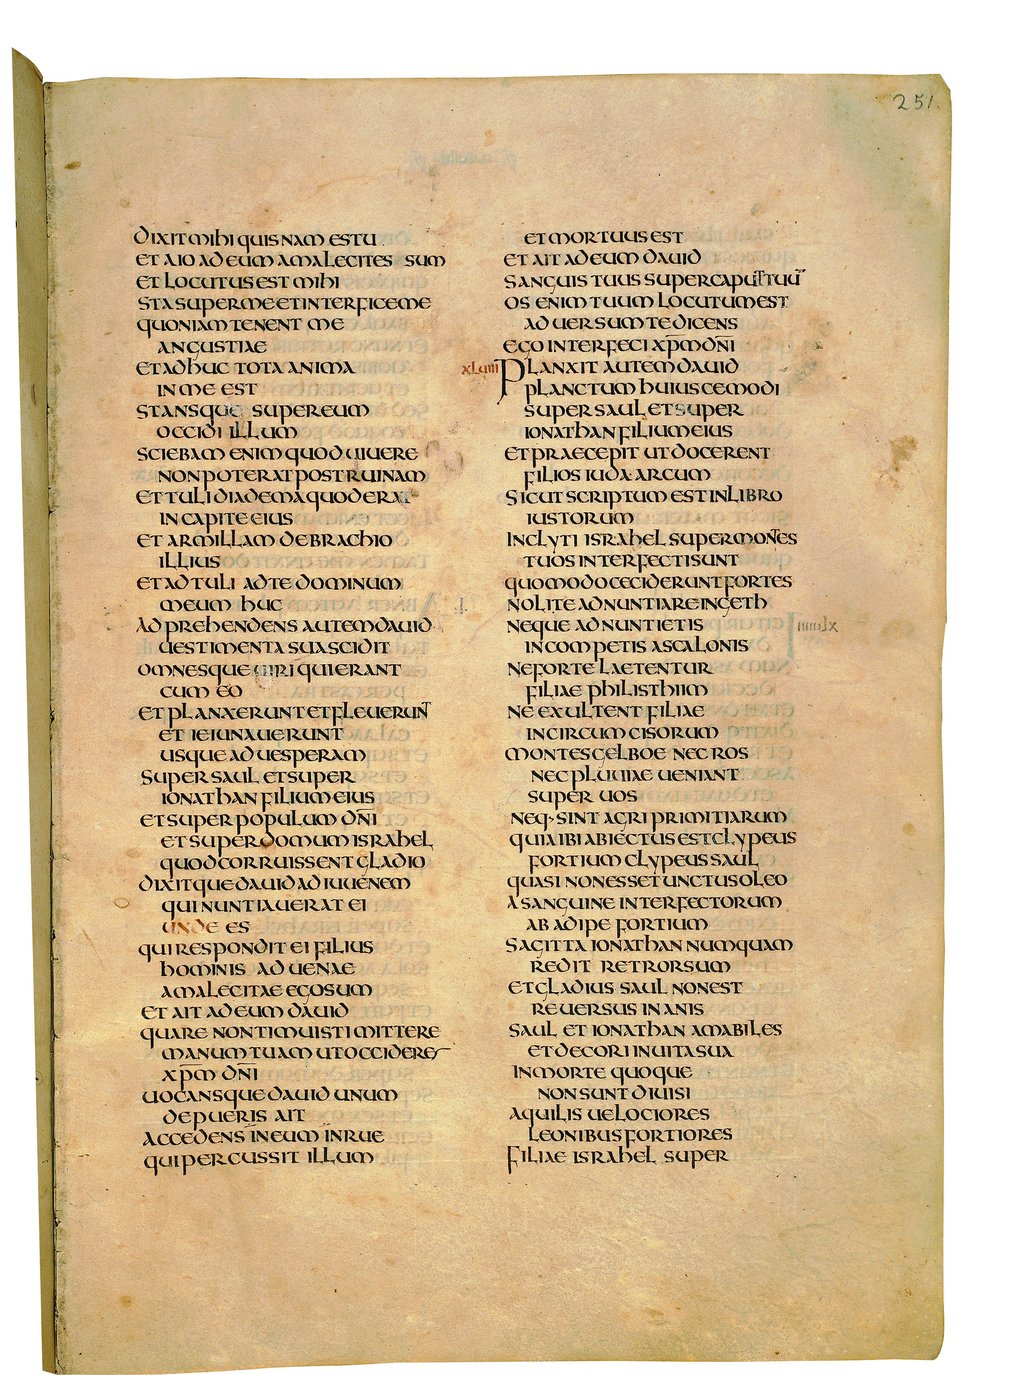 251
DIXIT MIHI QUISNAM ES TU
ET AIO AD EUM AMALECITES SUM
ET LOCUTUS EST MIHI
STA SUPER ME ET INTERFICE ME
QUONIAM TENENT ME
ANGUSTIAE
ET ADHUC TOTA ANIMA
IN ME EST
STANSQUE SUPER EUM
OCCIDI ILLUM
SCIEBAM ENIM QUOD UIUERE
NON POTERAT POST RUINAM
ET TULI DIADEMA QUOD ERAT
IN CAPITE EIUS
ET ARMILLAM DE BRACHIO
ILLIUS
ET ADTULI AD TE DOMINUM
MEUM HUC
ADPREHENDENS AUTEM DAUID
UESTIMENTA SUA SCIDIT
OMNESQUE UIRI QUI ERANT
CUM EO
ET PLANXERUNT ET FLEUERUN̄T
ET IEIUNAUERUNT
USQUE AD UESPERAM
SUPER SAUL ET SUPER
IONATHAN FILIUM EIUS
ET SUPER POPULUM DN̄I
ET SUPER DOMUM ISRAHEL
QUOD CORRUISSENT GLADIO
DIXITQUE DAUID AD IUUENEM
QUI NUNTIAUERAT EI
UNDE ES
QUI RESPONDIT EI FILIUS
HOMINIS ADUENAE
AMALECITAE EGO SUM
ET AIT AD EUM DAUID
QUARE NON TIMUISTI MITTERE
MANUM TUAM UT OCCIDERES
XP̄M DN̄I
UOCANSQUE DAUID UNUM
DE PUERIS AIT
ACCEDENS IN EUM INRUE
QUI PERCUSSIT ILLUM
ET MORTUUS EST
ET AIT AD EUM DAUID
SANGUIS TUUS SUPER CAPUT TUŪ
OS ENIM TUUM LOCUTUM EST
ADUERSUM TE DICENS
EGO INTERFECI XP̄M DN̄I
XLUIII PLANXIT AUTEM DAUID
PLANCTUM HUIUSCEMODI
SUPER SAUL ET SUPER
IONATHAN FILIUM EIUS
ET PRAECEPIT UT DOCERENT
FILIOS IUDA ARCUM
SICUT SCRIPTUM EST IN LIBRO
IUSTORUM
INCLYTI ISRAHEL SUPER MON̄TES
TUOS INTERFECTI SUNT
QUOMODO CECIDERUNT FORTES
NOLITE ADNUNTIARE IN GETH
NEQUE ADNUNTIETIS
IN COMPETIS ASCALONIS
NE FORTE LAETENTUR
FILIAE PHILISTHIIM
NE EXULTENT FILIAE
INCIRCUMCISORUM
MONTES GELBOE NEC ROS
NEC PLUUIAE UENIANT
SUPER UOS
NEQ· SINT AGRI PRIMITIARUM
QUIA IBI ABIECTUS EST CLYPEUS
FORTIUM CLYPEUS SAUL
QUASI NON ESSET UNCTUS OLEO
A SANGUINE INTERFECTORUM
AB ADIPE FORTIUM
SAGITTA IONATHAN NUMQUAM
REDIT RETRORSUM
ET GLADIUS SAUL NON EST
REUERSUS INANIS
SAUL ET IONATHAN AMABILES
ET DECORI IN UITA SUA
IN MORTE QUOQUE
NON SUNT DIUISI
AQUILIS UELOCIORES
LEONIBUS FORTIORES
FILIAE ISRAHEL SUPER